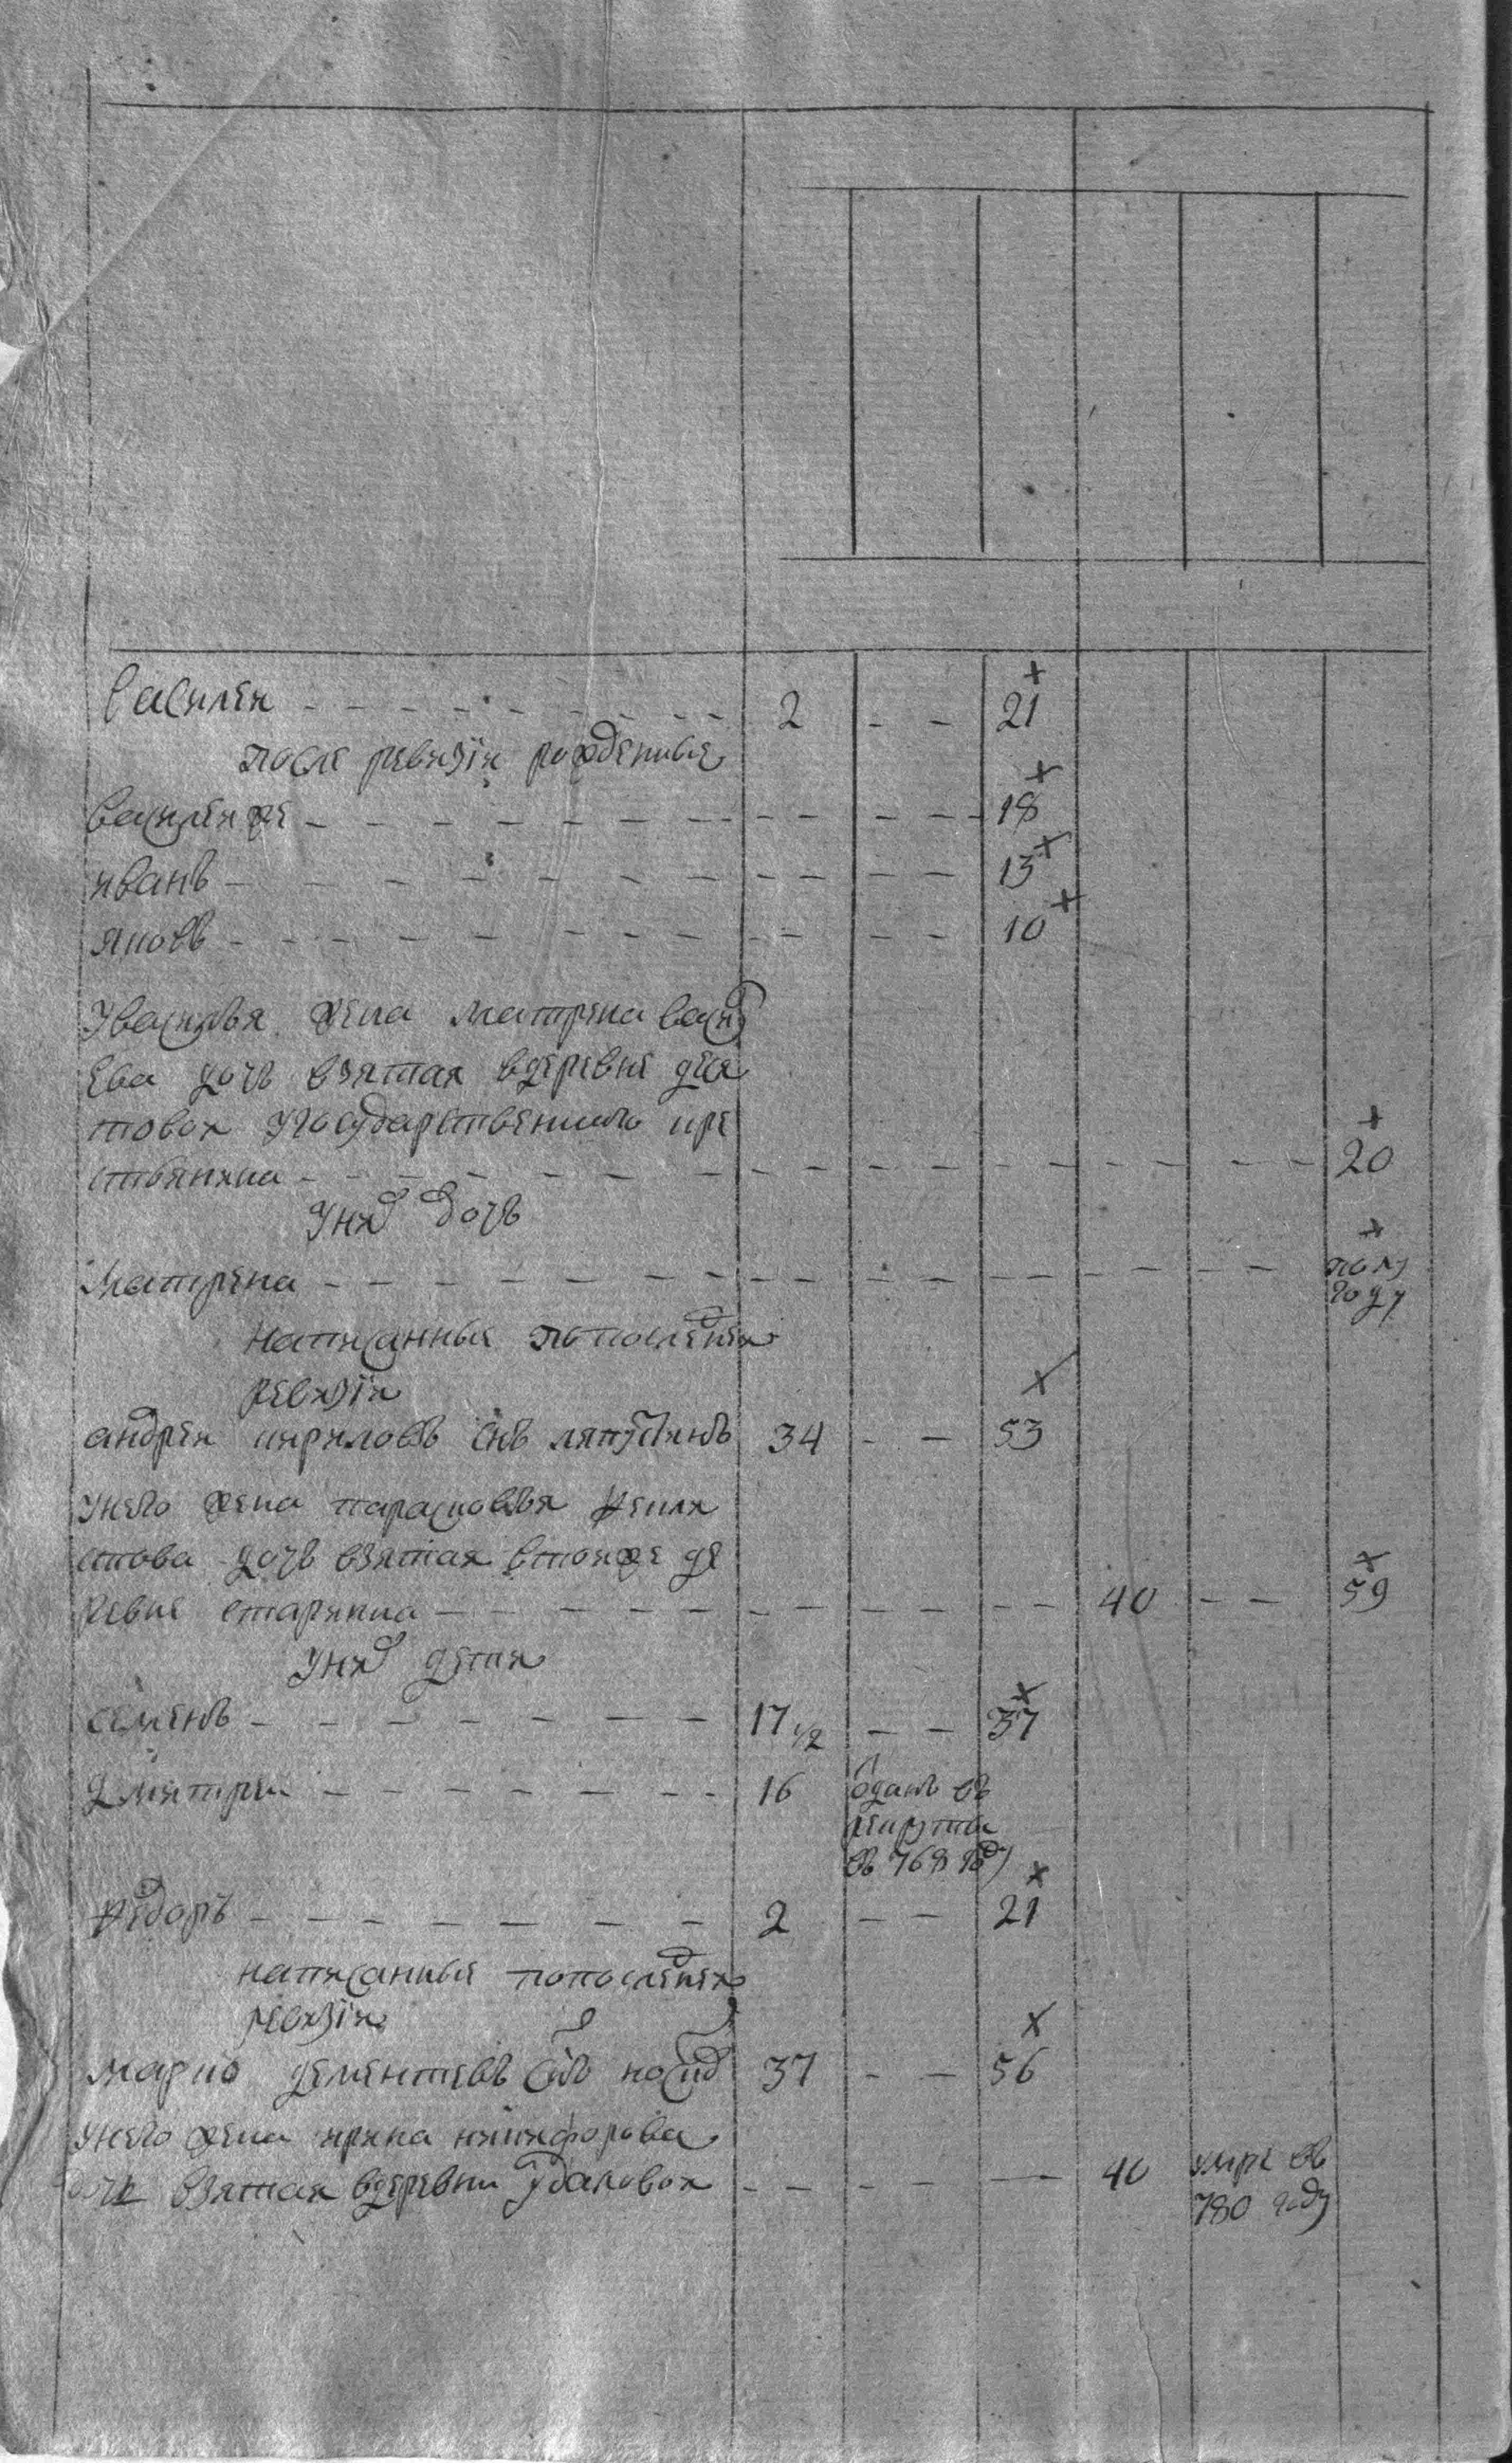 василеи - - - - - - - - 2 - - 21
после ревизiи рожденные
василеи же - - - - - - - - - - - - 18
иванъ - - - - - - - - - - - - 13
яковъ - - - - - - - - - - - - 10
У василья жена матрена васил
ева дочь взятая вдеревне
товои угосударственного кре
стьянина - - - - - - - - - - - - 20
Уних дочь
матрена - - - - - - - - - - - - полу
году
написанные попоследнеи
ревизiи
андреи кириловъ снъ ляпустинъ 34 - - 53
Унего жена парасковья фели
стова дочь взятая втоиже де
ревне старинна - - - - - - - - - - 40 - - 59
Уних дети
семенъ - - - - - - - 17 1/2 - - 37
дмитреи - - - - - - - 16 отданъ въ
рекруты
въ 768 году
федоръ - - - - - - - 2 - - 21
написанные попоследнеи
ревизiи
марко дементевъ снъ 37 - - 56
Унего жена ирина никифорова
дочь взятая вдеревни Удаловои - - - - - 40 умре въ
780 году